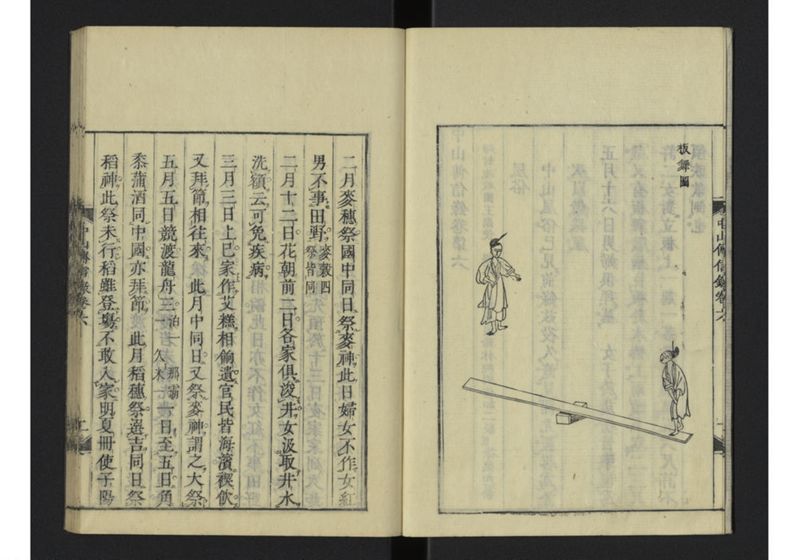 板舞圖
中山傳信錄卷六
二月麥穗祭國中同日祭麥神此日婦女不作女紅
男不事田野麥數四
祭皆同
二月十二日花朝前二日各家俱浚井女汲取井水
洗額云可免疾病
三月三日上巳家作艾糕相餉遺官民皆海濱禊飲
又拜節相往來此月中同日又祭麥神謂之大祭
五月五日競渡龍舟三泊一那霸
一久米一一日至五日角
黍蒲酒同中國亦拜節此月稻穗祭選吉同日祭
稻神此祭未行稻雖登場不敢入家明夏冊使子陽
中山傳信錄卷六